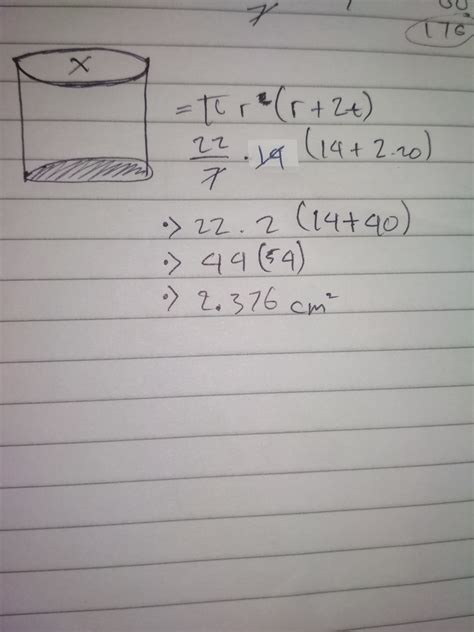 176
x
= π r² (r + 2t)
22/7 · 14 (14 + 2.20)
·> 22 . 2 (14+40)
·> 44 (54)
·> 2.376 cm²